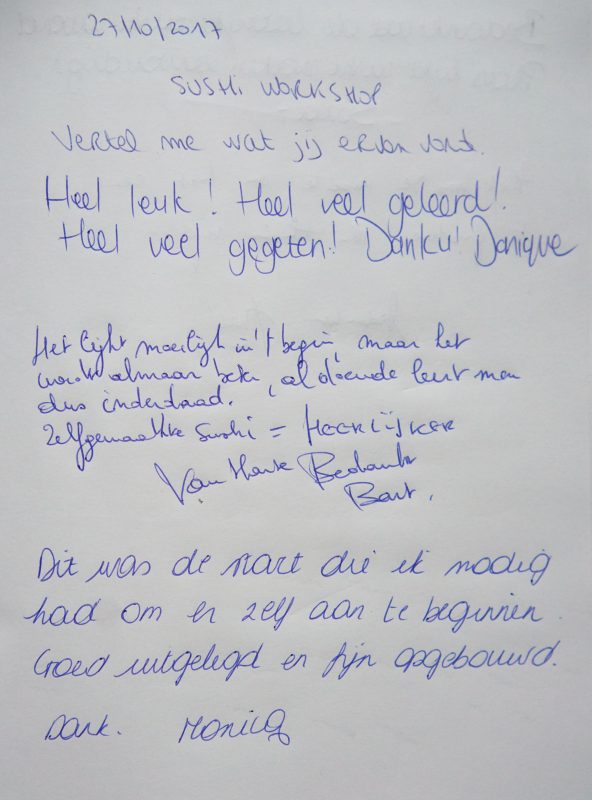 27/10/2017
SUSHi WORKSHOP
Vertel me wat jij ervan vond.
Heel leuk! Heel veel geleerd!
Heel veel gegeten! Danku! Danique
Het lijkt moeilijk in 't begin, maar het
wordt almaar beter, al doende leert men
dus inderdaad.
Zelfgemaakte Sushi = HEERLiJKER
Van Harte Bedankt
Bart.
Dit was de start die ik nodig
had om er zelf aan te beginnen.
Goed uitgelegd en fijn opgebouwd.
Dank. Monica